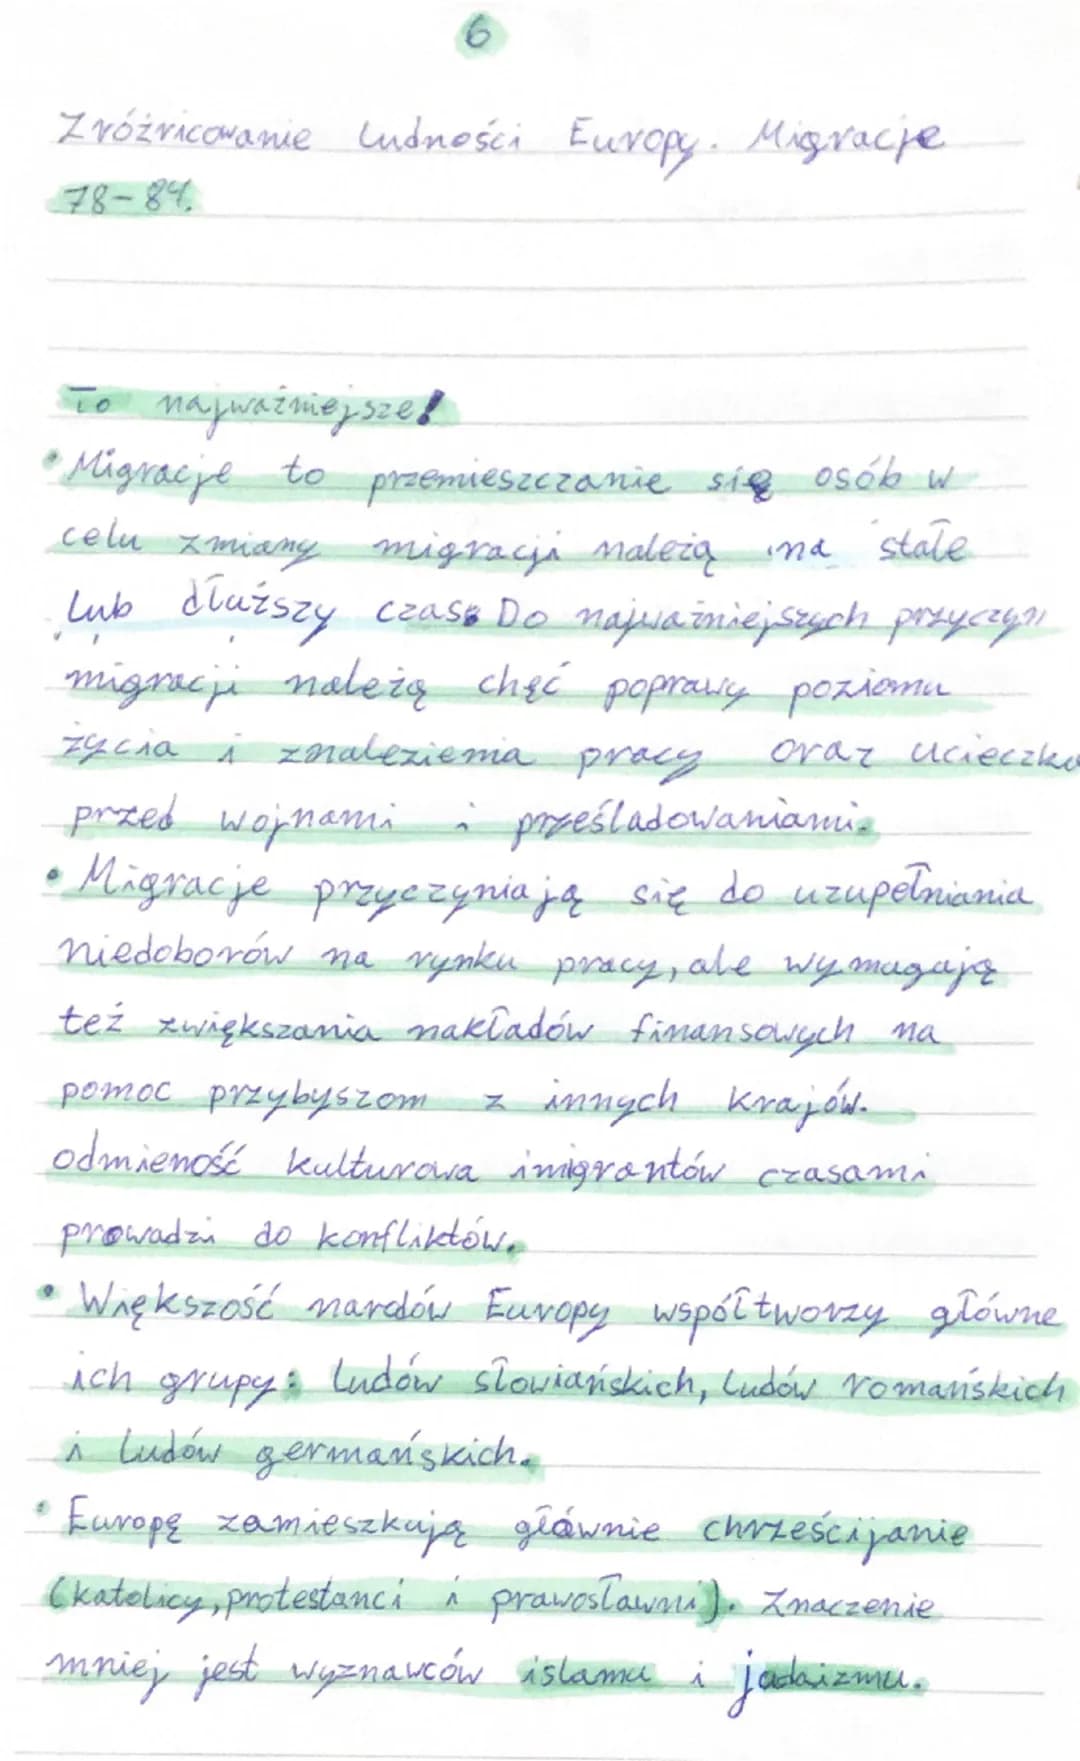 6
Zróżnicowanie ludności Europy. Migracje
78-84.
To najważniejsze!
• Migracje to przemieszczanie się osób w
celu zmiany migracji należą na stałe
lub dłuższy czas. Do najważniejszych przyczyn
migracji należą chęć poprawy poziomu
życia i znalezienia pracy oraz ucieczka
przed wojnami i prześladowaniami.
• Migracje przyczyniają się do uzupełniania
niedoborów na rynku pracy, ale wymagają
też zwiększania nakładów finansowych na
pomoc przybyszom z innych krajów.
odmieność kulturowa imigrantów czasami
prowadzi do konfliktów.
• Większość narodów Europy współtworzy główne
ich grupy: ludów słowiańskich, ludów romańskich
i ludów germańskich.
• Europę zamieszkują głównie chrześcijanie
(katolicy, protestanci i prawosławni). Znaczenie
mniej jest wyznawców islamu i judaizmu.